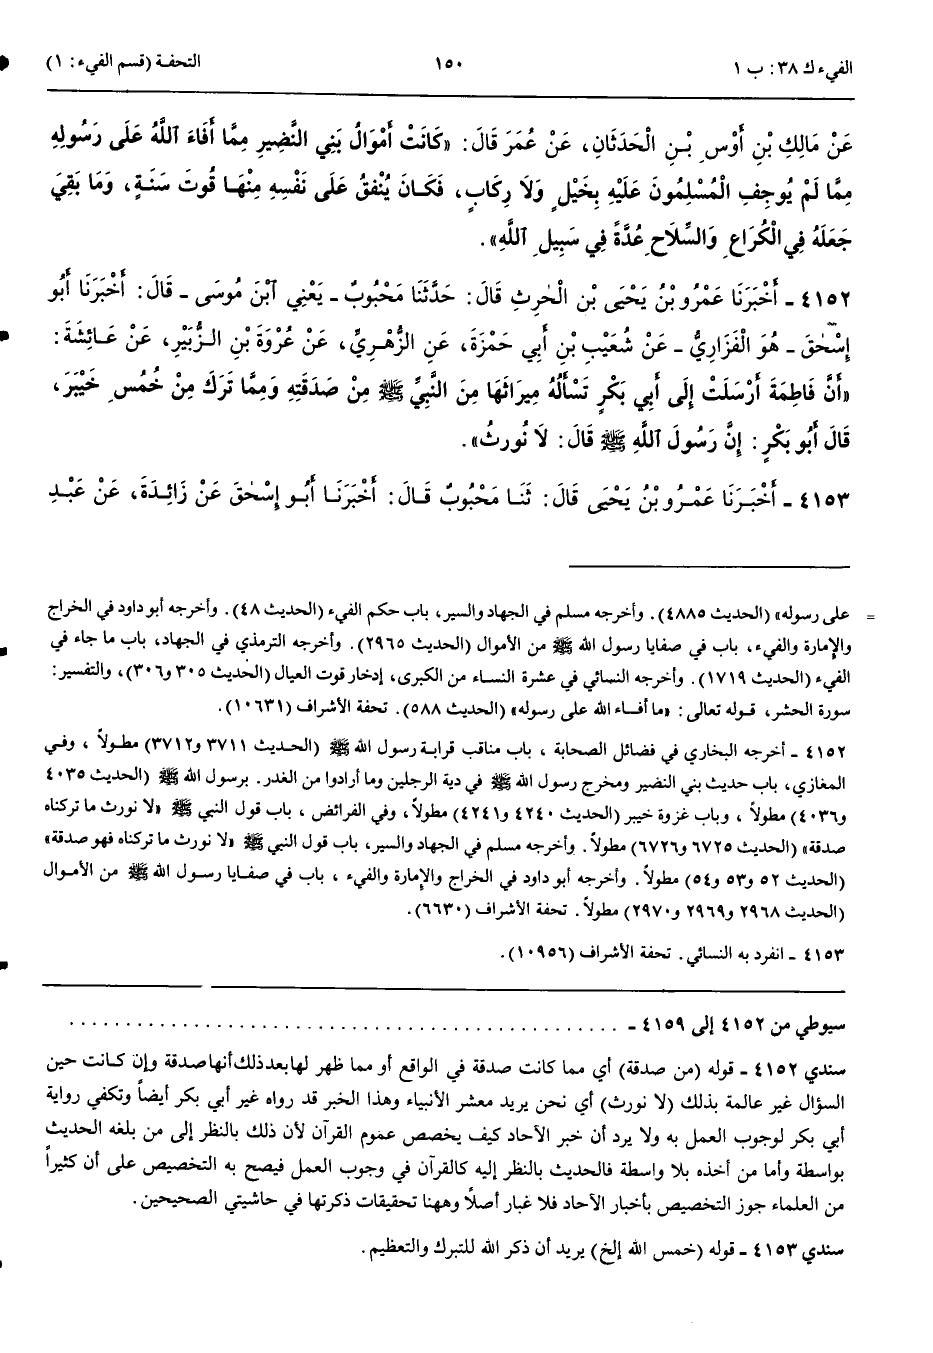 الفيء ك ٣٨: ب ١
١٥٠
التحفة (قسم الفيء: ١)
عَنْ مَالِكِ بْنِ أَوْسِ بْنِ الْحَدَثَانِ، عَنْ عُمَرَ قَالَ: «كَانَتْ أَمْوَالُ بَنِي النَّضِيرِ مِمَّا أَفَاءَ ٱللَّهُ عَلَى رَسُولِهِ
مِمَّا لَمْ يُوجِفِ الْمُسْلِمُونَ عَلَيْهِ بِخَيْلٍ وَلَا رِكَابٍ، فَكَانَ يُنْفِقُ عَلَى نَفْسِهِ مِنْهَا قُوتَ سَنَةٍ، وَمَا بَقِيَ
جَعَلَهُ فِي الْكُرَاعِ وَالسِّلَاحِ عُدَّةً فِي سَبِيلِ ٱللَّهِ».
٤١٥٢ ـ أَخْبَرَنَا عَمْرُو بْنُ يَحْيَى بْنِ الْحٰرِثِ قَالَ: حَدَّثَنَا مَحْبُوبٌ ـ يَعْنِي ٱبْنَ مُوسَى ـ قَالَ: أَخْبَرَنَا أَبُو
إِسْحٰقَ ـ هُوَ الْفَزَارِيُّ ـ عَنْ شُعَيْبِ بْنِ أَبِي حَمْزَةَ، عَنِ الزُّهْرِيِّ، عَنْ عُرْوَةَ بْنِ الزُّبَيْرِ، عَنْ عَائِشَةَ:
«أَنَّ فَاطِمَةَ أَرْسَلَتْ إِلَى أَبِي بَكْرٍ تَسْأَلُهُ مِيرَاثَهَا مِنَ النَّبِيِّ ﷺ مِنْ صَدَقَتِهِ وَمِمَّا تَرَكَ مِنْ خُمُسِ خَيْبَرَ،
قَالَ أَبُو بَكْرٍ: إِنَّ رَسُولَ ٱللَّهِ ﷺ قَالَ: لَا نُورَثُ».
٤١٥٣ ـ أَخْبَرَنَا عَمْرُو بْنُ يَحْيَى قَالَ: ثَنَا مَحْبُوبٌ قَالَ: أَخْبَرَنَا أَبُو إِسْحٰقَ عَنْ زَائِدَةَ، عَنْ عَبْدِ
= على رسوله» (الحديث ٤٨٨٥). وأخرجه مسلم في الجهاد والسير، باب حكم الفيء (الحديث ٤٨). وأخرجه أبو داود في الخراج
والإمارة والفيء، باب في صفايا رسول الله ﷺ من الأموال (الحديث ٢٩٦٥). وأخرجه الترمذي في الجهاد، باب ما جاء في
الفيء (الحديث ١٧١٩). وأخرجه النسائي في عشرة النساء من الكبرى، إدخار قوت العيال (الحديث ٣٠٥ و٣٠٦)، والتفسير:
سورة الحشر، قوله تعالى: «ما أفاء الله على رسوله» (الحديث ٥٨٨). تحفة الأشراف (١٠٦٣١).
٤١٥٢ ـ أخرجه البخاري في فضائل الصحابة ، باب مناقب قرابة رسول الله ﷺ (الحديث ٣٧١١ و٣٧١٢) مطولاً ، وفي
المغازي، باب حديث بني النضير ومخرج رسول الله ﷺ في دية الرجلين وما أرادوا من الغدر. برسول الله ﷺ (الحديث ٤٠٣٥
و٤٠٣٦) مطولاً ، وباب غزوة خيبر (الحديث ٤٢٤٠ و٤٢٤١) مطولاً، وفي الفرائض ، باب قول النبي ﷺ «لا نورث ما تركناه
صدقة» (الحديث ٦٧٢٥ و٦٧٢٦) مطولاً. وأخرجه مسلم في الجهاد والسير، باب قول النبي ﷺ «لا نورث ما تركناه فهو صدقة»
(الحديث ٥٢ و٥٣ و٥٤) مطولاً. وأخرجه أبو داود في الخراج والإمارة والفيء ، باب في صفايا رسول الله ﷺ من الأموال
(الحديث ٢٩٦٨ و٢٩٦٩ و٢٩٧٠) مطولاً. تحفة الأشراف (٦٦٣٠).
٤١٥٣ ـ انفرد به النسائي. تحفة الأشراف (١٠٩٥٦).
سيوطي من ٤١٥٢ إلى ٤١٥٩ ـ ..................................................
سندي ٤١٥٢ ـ قوله (من صدقة) أي مما كانت صدقة في الواقع أو مما ظهر لها بعد ذلك أنها صدقة وإن كانت حين
السؤال غير عالمة بذلك (لا نورث) أي نحن يريد معشر الأنبياء وهذا الخبر قد رواه غير أبي بكر أيضاً وتكفي رواية
أبي بكر لوجوب العمل به ولا يرد أن خبر الآحاد كيف يخصص عموم القرآن لأن ذلك بالنظر إلى من بلغه الحديث
بواسطة وأما من أخذه بلا واسطة فالحديث بالنظر إليه كالقرآن في وجوب العمل فيصح به التخصيص على أن كثيراً
من العلماء جوز التخصيص بأخبار الآحاد فلا غبار أصلاً وههنا تحقيقات ذكرتها في حاشيتي الصحيحين.
سندي ٤١٥٣ ـ قوله (خمس الله إلخ) يريد أن ذكر الله للتبرك والتعظيم.